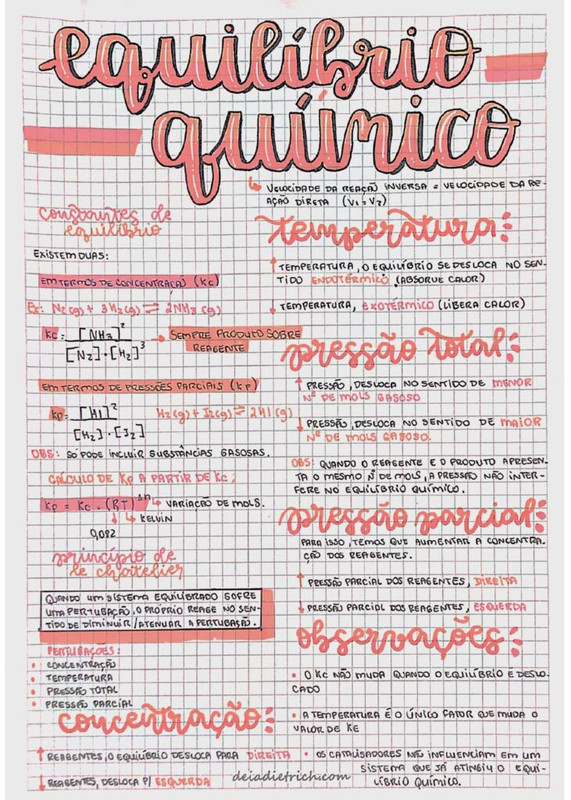 equilíbrio
químico
↳ VELOCIDADE DA REAÇÃO INVERSA = VELOCIDADE DA RE-
AÇÃO DIRETA (V1=V2)
constantes de
equilíbrio
EXISTEM DUAS:
EM TERMOS DE CONCENTRAÇÃO (Kc)
Ex: N2(g) + 3H2(g) ⇌ 2NH3(g)
Kc = [NH3]² / [N2]·[H2]³ → SEMPRE PRODUTO SOBRE
REAGENTE
EM TERMOS DE PRESSÕES PARCIAIS (Kp)
Kp = [HI]² / [H2]·[I2] H2(g) + I2(g) ⇌ 2HI(g)
OBS: SÓ PODE INCLUIR SUBSTÂNCIAS GASOSAS.
CÁLCULO DE Kp A PARTIR DE Kc:
Kp = Kc · (RT)^Δn ↳ VARIAÇÃO DE MOLS.
↓ ↳ KELVIN
0,082
princípio de
le chatelier
QUANDO UM SISTEMA EQUILIBRADO SOFRE
UMA PERTUBAÇÃO, O PRÓPRIO REAGE NO SEN-
TIDO DE DIMINUIR/ATENUAR A PERTUBAÇÃO.
PERTUBAÇÕES:
• CONCENTRAÇÃO
• TEMPERATURA
• PRESSÃO TOTAL
• PRESSÃO PARCIAL
concentração:
↑ REAGENTES, O EQUILÍBRIO DESLOCA PARA DIREITA
↓ REAGENTES, DESLOCA P/ ESQUERDA
temperatura:
↑ TEMPERATURA, O EQUILÍBRIO SE DESLOCA NO SEN-
TIDO ENDOTÉRMICO (ABSORVE CALOR)
↓ TEMPERATURA, EXOTÉRMICO (LIBERA CALOR)
pressão total:
↑ PRESSÃO, DESLOCA NO SENTIDO DE MENOR
Nº DE MOLS GASOSO
↓ PRESSÃO, DESLOCA NO SENTIDO DE MAIOR
Nº DE MOLS GASOSO.
OBS: QUANDO O REAGENTE E O PRODUTO APRESEN-
TA O MESMO Nº DE MOLS, A PRESSÃO NÃO INTER-
FERE NO EQUILÍBRIO QUÍMICO.
pressão parcial:
PARA ISSO, TEMOS QUE AUMENTAR A CONCENTRA-
ÇÃO DOS REAGENTES.
↑ PRESSÃO PARCIAL DOS REAGENTES, DIREITA
↓ PRESSÃO PARCIAL DOS REAGENTES, ESQUERDA
observações:
• O Kc NÃO MUDA QUANDO O EQUILÍBRIO É DESLO-
CADO
• A TEMPERATURA É O ÚNICO FATOR QUE MUDA O
VALOR DE KE
• OS CATALISADORES NÃO INFLUENCIAM EM UM
SISTEMA QUE JÁ ATINGIU O EQUI-
LÍBRIO QUÍMICO.
deiadietrich.com